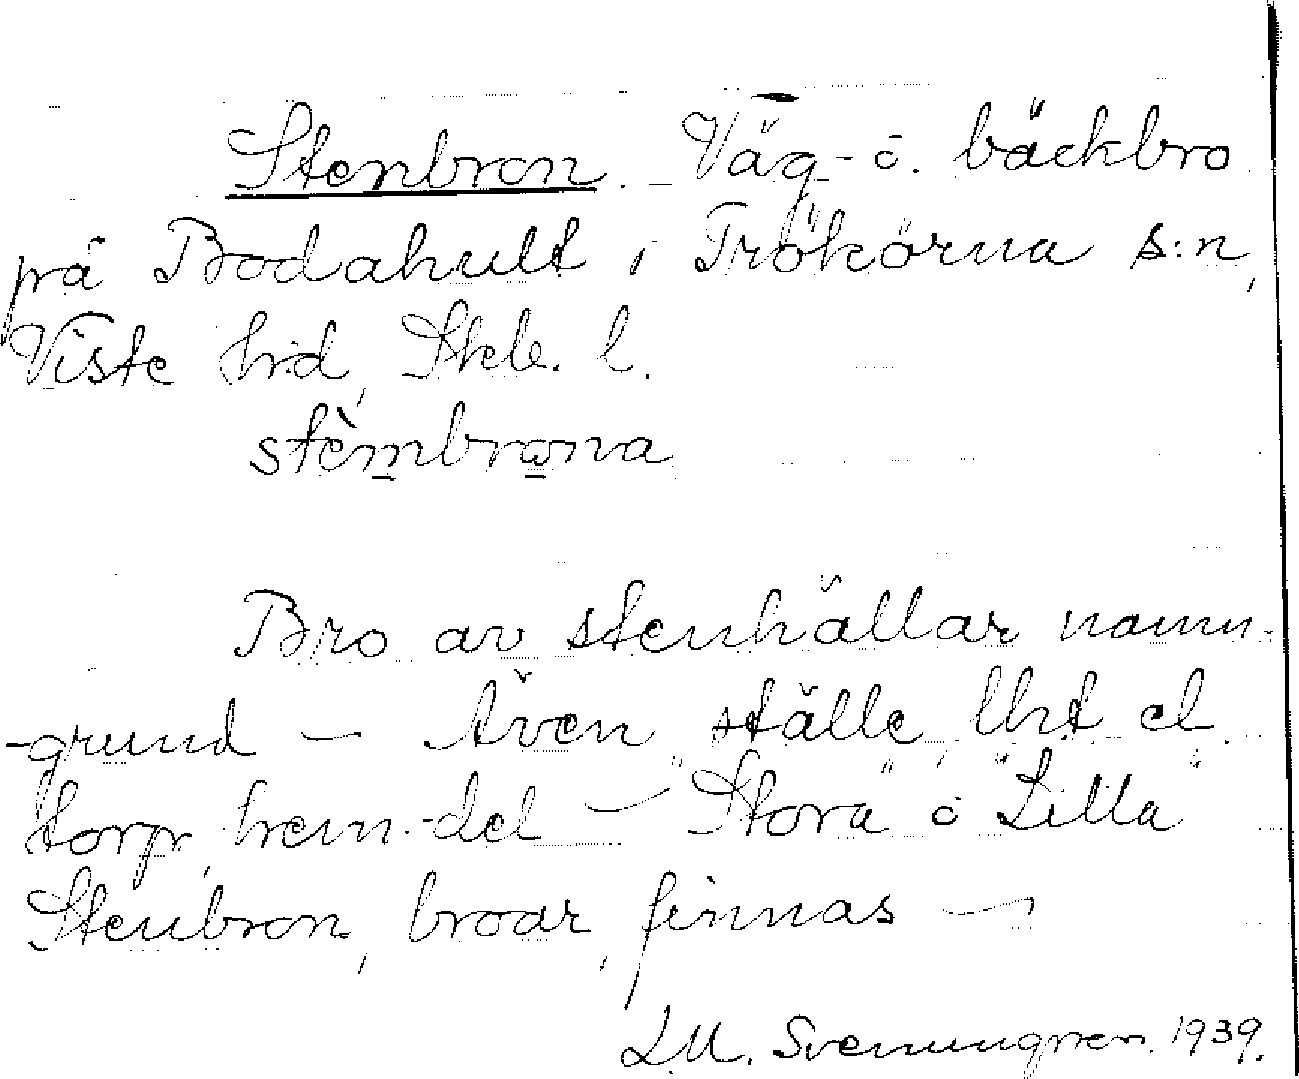 Stenbron. Väg- o. bäckbro
på Bodahult i Trökörna s:n,
Viste hd, Skb. l.
stèmbrona
Bro av stenhällar namn-
-grund — Även ställe, lht el.
torp, hem.-del — "Stora" o "Lilla"
Stenbron, broar, finnas —
D.M. Svenungsen. 1939.